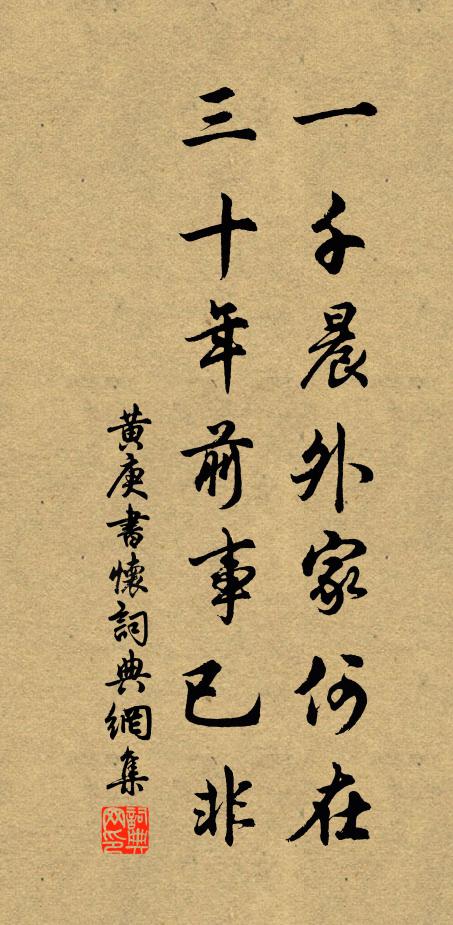 一千晨外家何在
三十年前事已非
黄庚書懷詞典網集
詞典网印